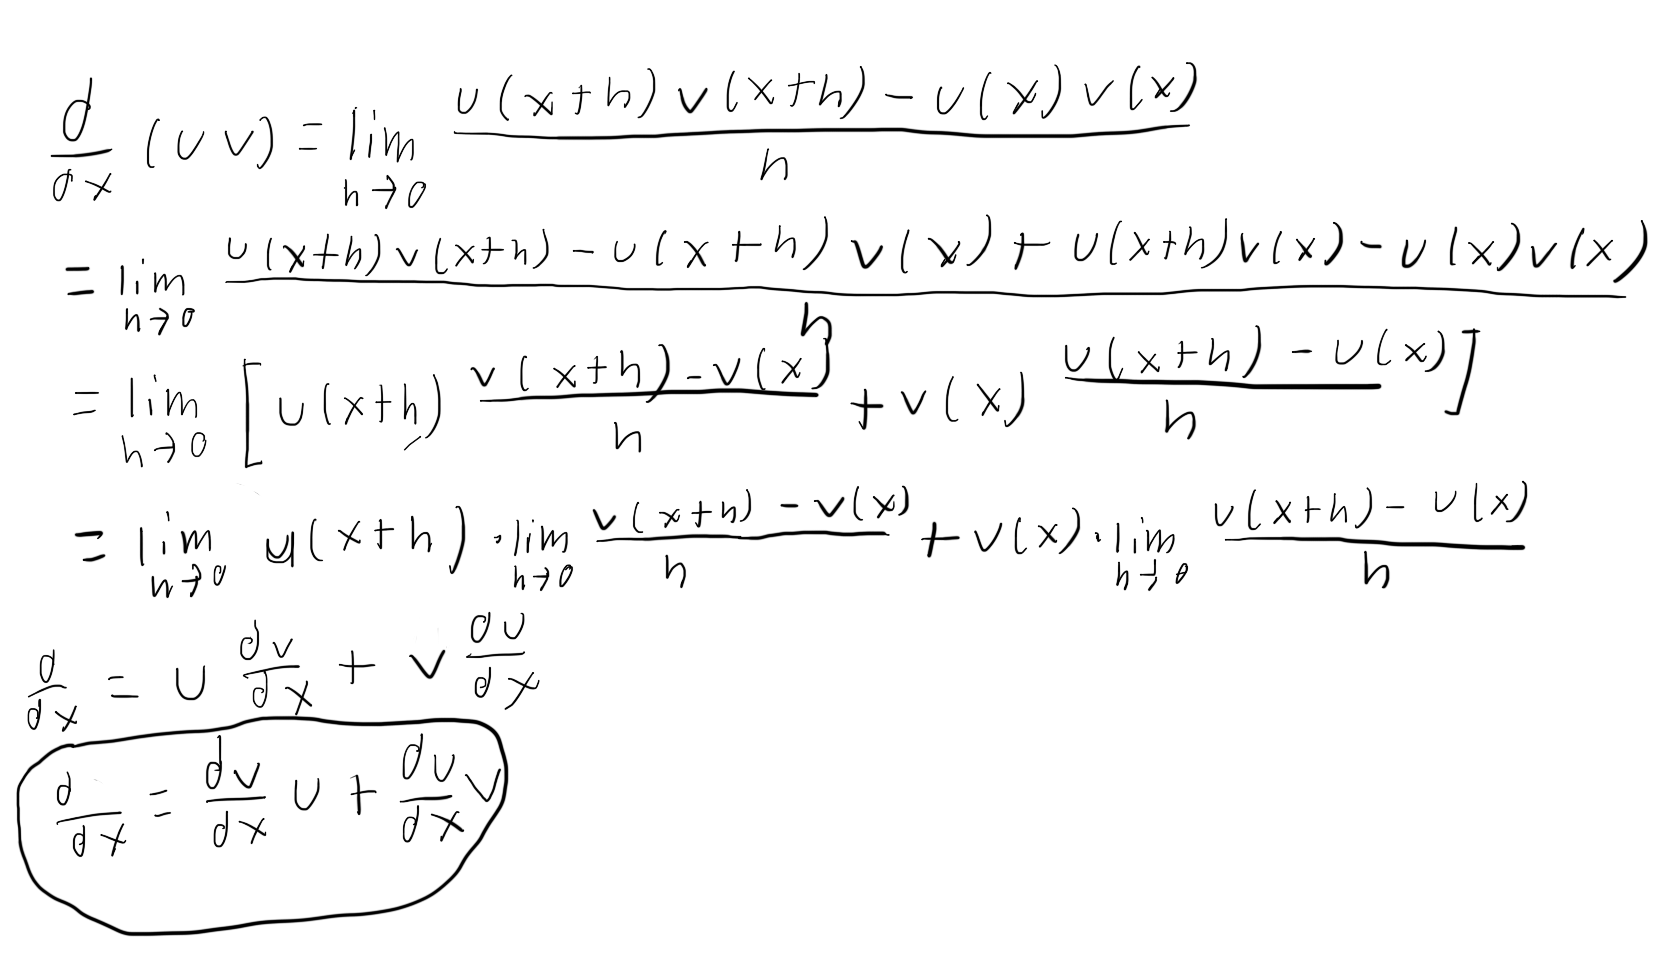 d/dx (uv) = lim h→0 (u(x+h)v(x+h) - u(x)v(x))/h
= lim h→0 (u(x+h)v(x+h) - u(x+h)v(x) + u(x+h)v(x) - u(x)v(x))/h
= lim h→0 [u(x+h) (v(x+h) - v(x))/h + v(x) (u(x+h) - u(x))/h]
= lim h→0 u(x+h) · lim h→0 (v(x+h) - v(x))/h + v(x) · lim h→0 (u(x+h) - u(x))/h
d/dx = u dv/dx + v du/dx
d/dx = dv/dx u + du/dx v